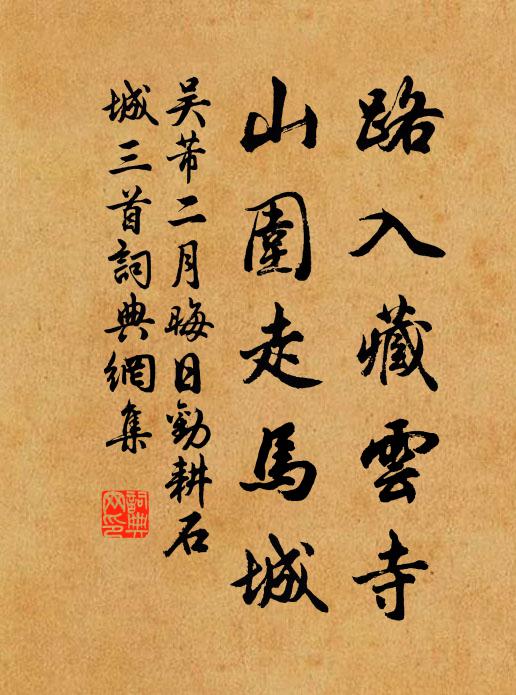 路入藏雲寺
山圍走馬城
吴芾二月晦日勸耕石
城三首詞典網集
詞典
网印